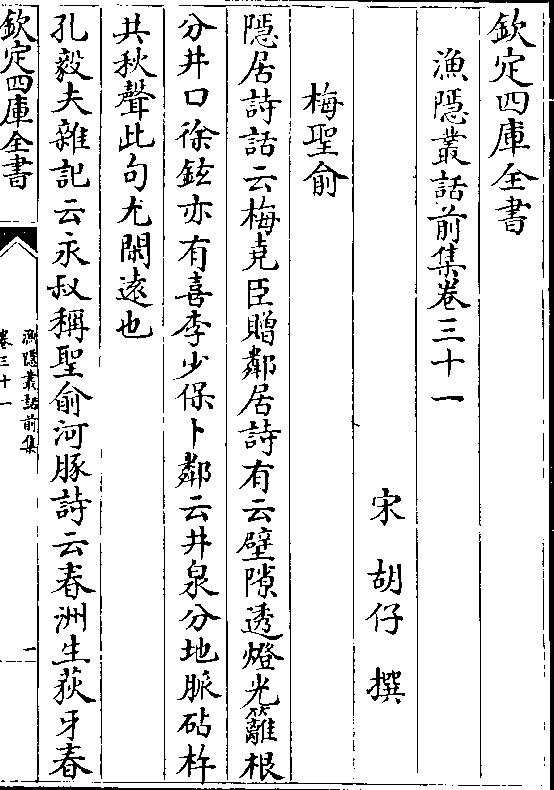 欽定四庫全書
漁隱叢話前集卷三十一
宋 胡仔 撰
梅聖俞
隱居詩話云梅堯臣贈鄰居詩有云壁隙透燈光籬根
分井口徐鉉亦有喜李少保卜鄰云井泉分地脈砧杵
共秋聲此句尤閑遠也
孔毅夫雜記云永叔稱聖俞河豚詩云春洲生荻牙春
欽定四庫全書
漁隱叢話前集
卷三十一
一